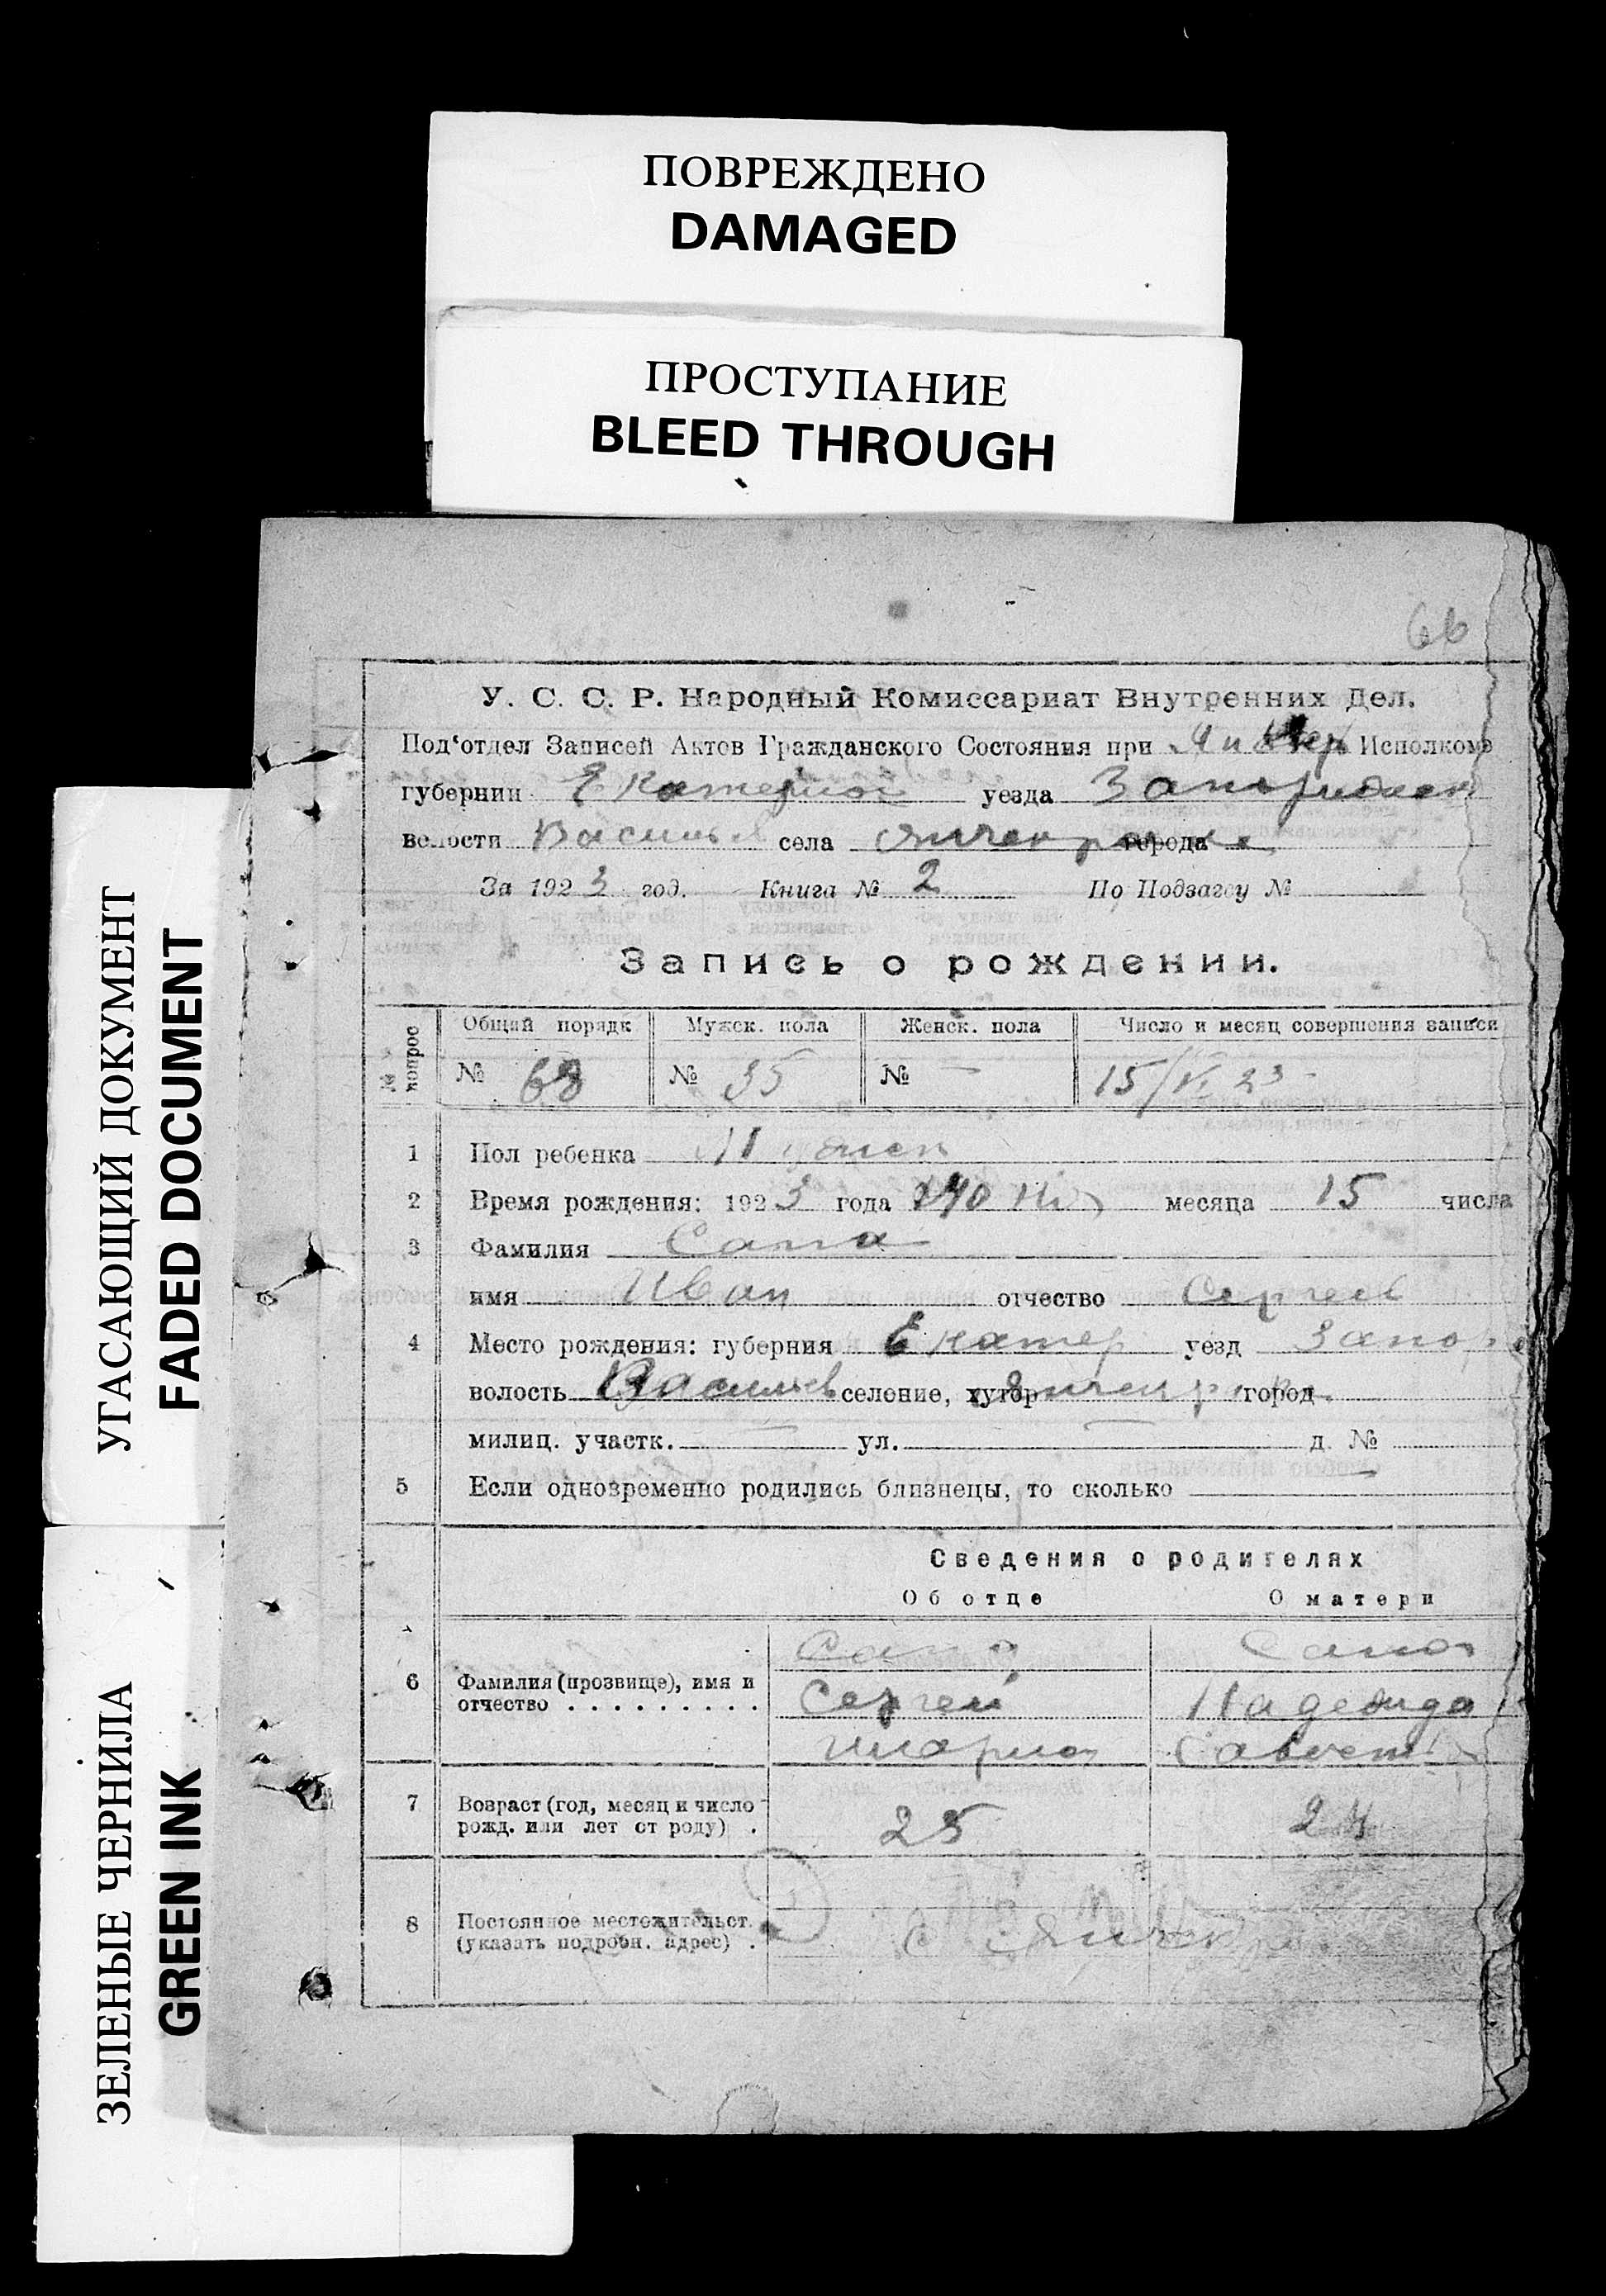 ПОВРЕЖДЕНО
DAMAGED
ПРОСТУПАНИЕ
BLEED THROUGH
УГАСАЮЩИЙ ДОКУМЕНТ
FADED DOCUMENT
ЗЕЛЕНЫЕ ЧЕРНИЛА
GREEN INK
66
У. С. С. Р. Народный Комиссариат Внутренних Дел.
Под'отдел Записей Актов Гражданского Состояния при Исполкоме
губернии Екатериной уезда Запорожск
волости Васильев села города
За 1923 год. Книга № 2 По Подзагсу №
Запись о рождении.
№ вопрос Общий порядк Мужск. пола Женск. пола Число и месяц совершения записи
№ 68 № 35 № — 15/VI 23
1 Пол ребенка Мужск
2 Время рождения: 1923 года месяца 15 числа
3 Фамилия Сапа
имя Иван отчество Сергеев
4 Место рождения: губерния Екатер уезд Запор
волость Васильев селение, хутор город
милиц. участк. — ул. — д. №
5 Если одновременно родились близнецы, то сколько —
Сведения о родителях
Об отце О матери
6 Фамилия (прозвище), имя и отчество . . . . . . . . .
Сапа Сапа
Сергей Надежда
7 Возраст (год, месяц и число рожд. или лет от роду) . 25 24
8 Постоянное местожительст. (указать подробн. адрес) .